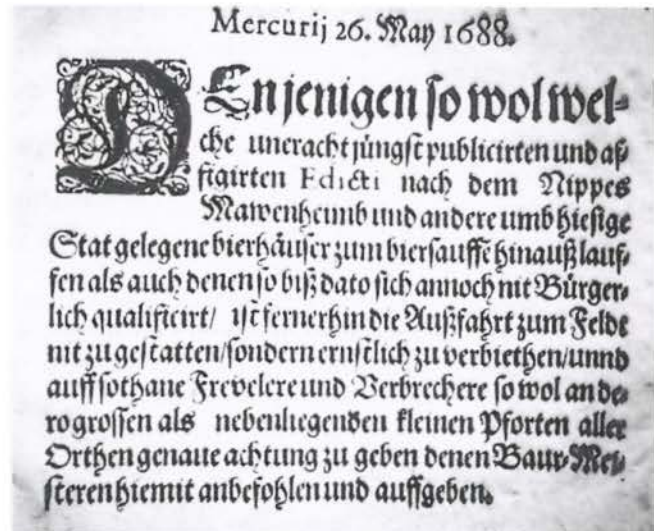 Mercurij 26. May 1688.
DEnjenigen so wol wel-
che uneracht jüngst publicirten und af-
figirten Edicti nach dem Nippes
Mawenheimb und andere umb hiesige
Stat gelegene bierhäuser zum biersauffē hinauß lauf-
fen als auch denen so biß dato sich annoch nit Bürger-
lich qualificirt/ ist fernerhin die Außfahrt zum Felde
nit zu gestatten/sondern ernstlich zu verbiethen/unnd
auff sothane Frevelere und Verbrechere so wol an de-
ro grossen als nebenliegenden kleinen Pforten aller
Orthen genaue achtung zu geben denen Baur-Mei-
steren hiemit anbefohlen und auffgeben.